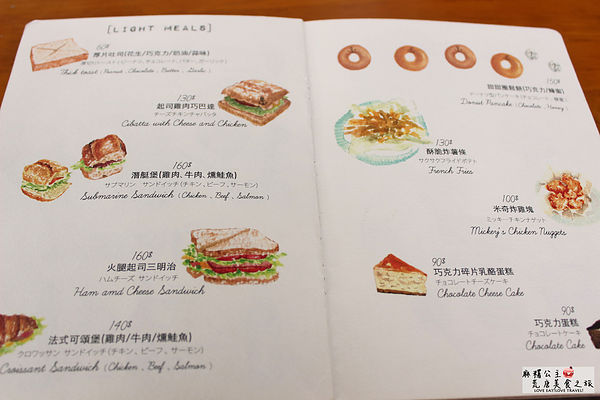 [LIGHT MEALS]
60$
厚片吐司(花生/巧克力/奶油/蒜味)
Thick toast (Peanut, Chocolate, Butter, Garlic)
130$
起司雞肉巧巴達
チーズチキンチャバッタ
Cibatta with Cheese and Chicken
160$
潛艇堡(雞肉、牛肉、燻鮭魚)
サブマリン サンドイッチ(チキン、ビーフ、サーモン)
Submarine Sandwich (Chicken, Beef, Salmon)
160$
火腿起司三明治
ハムチーズ サンドイッチ
Ham and Cheese Sandwich
140$
法式可頌堡(雞肉/牛肉/燻鮭魚)
クロワッサン サンドイッチ(チキン、ビーフ、サーモン)
Croissant Sandwich (Chicken, Beef, Salmon)
150$
甜甜圈鬆餅(巧克力/蜂蜜)
Donut Pancake (Chocolate, Honey)
130$
酥脆炸薯條
サクサクフライドポテト
French Fries
100$
米奇炸雞塊
ミッキーチキンナゲット
Mickery's Chicken Nuggets
90$
巧克力碎片乳酪蛋糕
チョコレートチーズケーキ
Chocolate Cheese Cake
90$
巧克力蛋糕
チョコレートケーキ
Chocolate Cake
麻糬公主
荒唐美食之旅
LOVE EAT!LOVE TRAVEL!